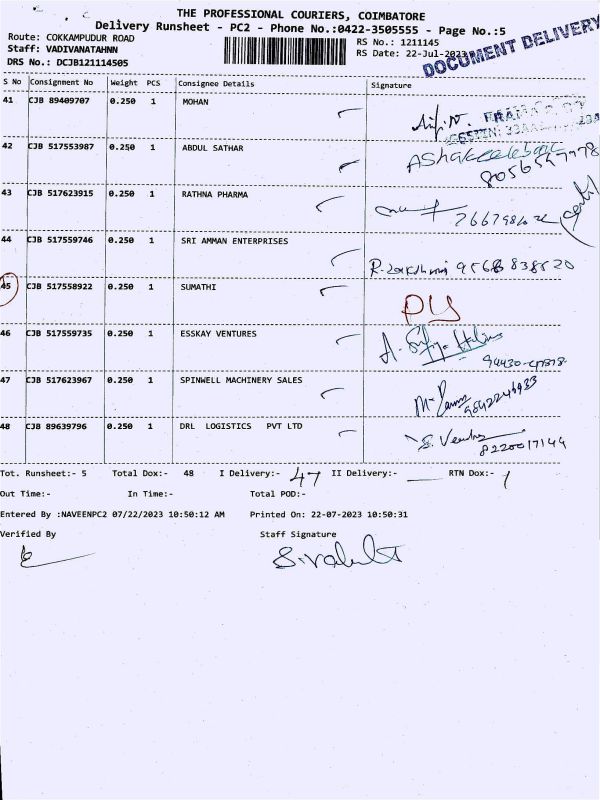 THE PROFESSIONAL COURIERS, COIMBATORE
Delivery Runsheet - PC2 - Phone No.:0422-3505555 - Page No.:5
Route: COKKAMPUDUR ROAD
Staff: VADIVANATAHNN
DRS No.: DCJB121114505
RS No.: 1211145
RS Date: 22-Jul-2023
DOCUMENT DELIVERY
S No Consignment No Weight PCS Consignee Details Signature
41 CJB 89409707 0.250 1 MOHAN
42 CJB 517553987 0.250 1 ABDUL SATHAR
8056547778
43 CJB 517623915 0.250 1 RATHNA PHARMA
44 CJB 517559746 0.250 1 SRI AMMAN ENTERPRISES
9568 838520
45 CJB 517558922 0.250 1 SUMATHI PU
46 CJB 517559735 0.250 1 ESSKAY VENTURES
47 CJB 517623967 0.250 1 SPINWELL MACHINERY SALES
9842246933
48 CJB 89639796 0.250 1 DRL LOGISTICS PVT LTD
8220017144
Tot. Runsheet:- 5 Total Dox:- 48 I Delivery:- 47 II Delivery:- — RTN Dox:- 1
Out Time:- In Time:- Total POD:-
Entered By :NAVEENPC2 07/22/2023 10:50:12 AM Printed On: 22-07-2023 10:50:31
Verified By Staff Signature